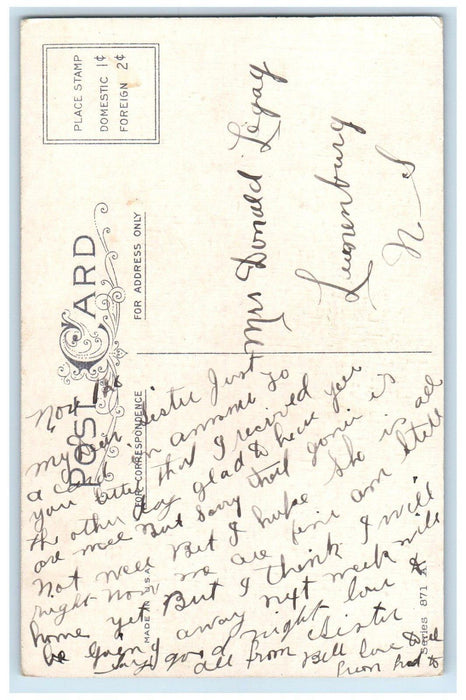 PLACE STAMP
DOMESTIC 1¢
FOREIGN 2¢
POST CARD
FOR ADDRESS ONLY
FOR CORRESPONDENCE
MADE IN U.S.A.
Series 871 A
Mrs Donald Legag
Lunenburg
N S
Nov 1 20
my dear sister Just
a card in answer to
you letter that I recived
the other day glad to hear you
are well But sorry that is
not well But I hope she is all
right now we are fine am still
home yet But I think I will
be going away next week will
say good night love to
all from sister
Bell love to all
from Fred to